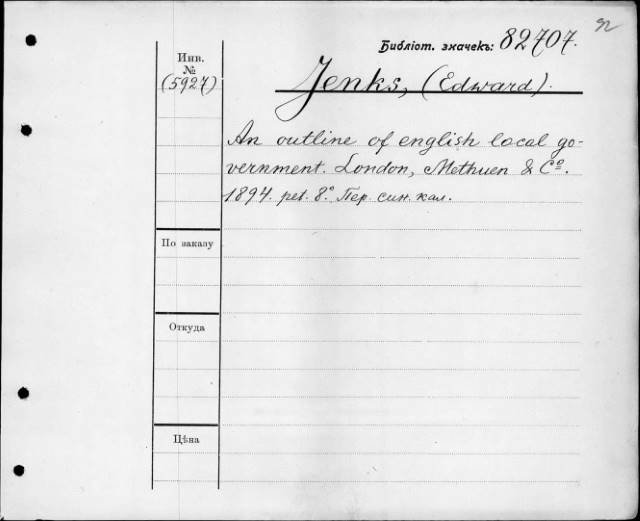 92
Библіот. значекъ: 82707.
Инв.
№
(5927)
Jenks, (Edward).
An outline of english local go-
vernment. London, Methuen & Cº.
1894. pet. 8.º Пер. син. кал.
По заказу
Откуда
Цѣна